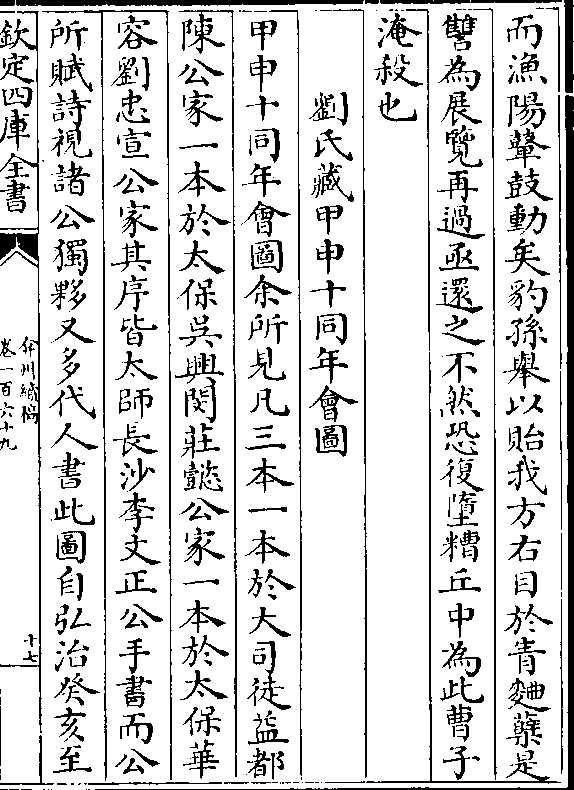 而漁陽鼙鼓動矣豹孫舉以貽我方右目於青麯蘖是
讐為展覽再過亟還之不然恐復墮糟丘中為此曹子
淹殺也
劉氏藏甲申十同年會圖
甲申十同年會圖余所見凡三本一本於大司徒益都
陳公家一本於太保吳興閔莊懿公家一本於太保華
容劉忠宣公家其序皆太師長沙李文正公手書而公
所賦詩視諸公獨夥又多代人書此圖自弘治癸亥至
欽定四庫全書
弇州續稿
卷一百六十九
十七